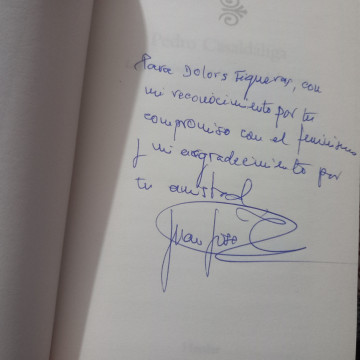 Para Dolors Figueras, con
mi reconocimiento por tu
compromiso con el feminismo
y mi agradecimiento por
tu amistad
Juan José